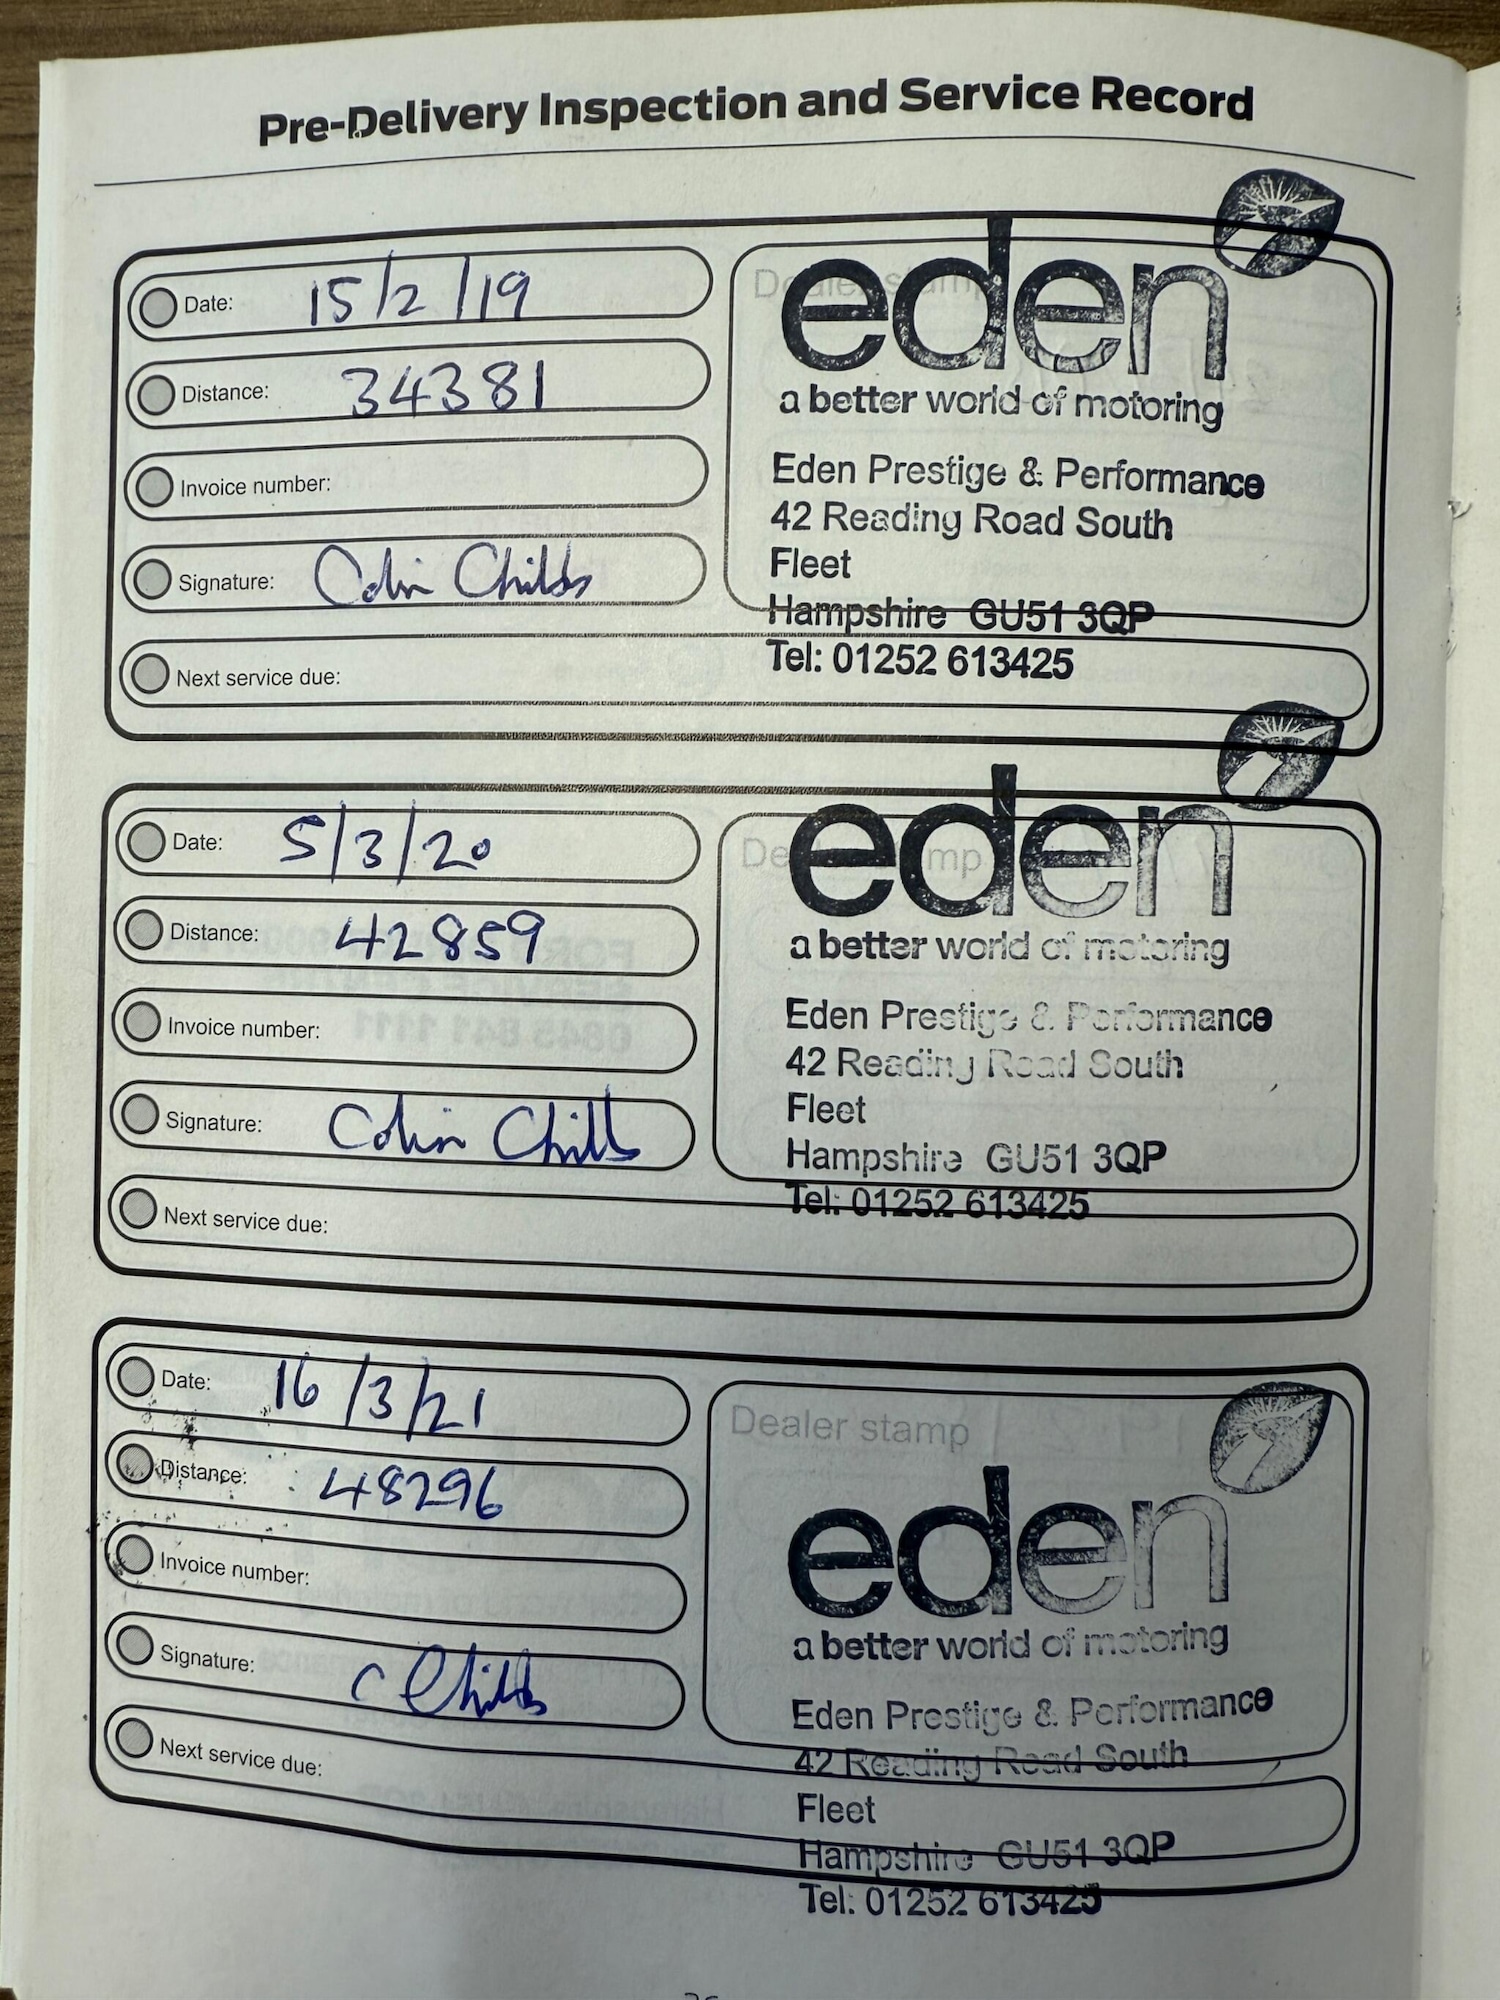 Pre-Delivery Inspection and Service Record
Date: 15/2/19
Distance: 34381
Invoice number:
Signature: Colin Childs
Next service due:
Dealer stamp
eden
a better world of motoring
Eden Prestige & Performance
42 Reading Road South
Fleet
Hampshire GU51 3QP
Tel: 01252 613425
Date: 5/3/20
Distance: 42859
Invoice number:
Signature: Colin Childs
Next service due:
Dealer stamp
eden
a better world of motoring
Eden Prestige & Performance
42 Reading Road South
Fleet
Hampshire GU51 3QP
Tel: 01252 613425
Date: 16/3/21
Distance: 48296
Invoice number:
Signature: C Childs
Next service due:
Dealer stamp
eden
a better world of motoring
Eden Prestige & Performance
42 Reading Road South
Fleet
Hampshire GU51 3QP
Tel: 01252 613425